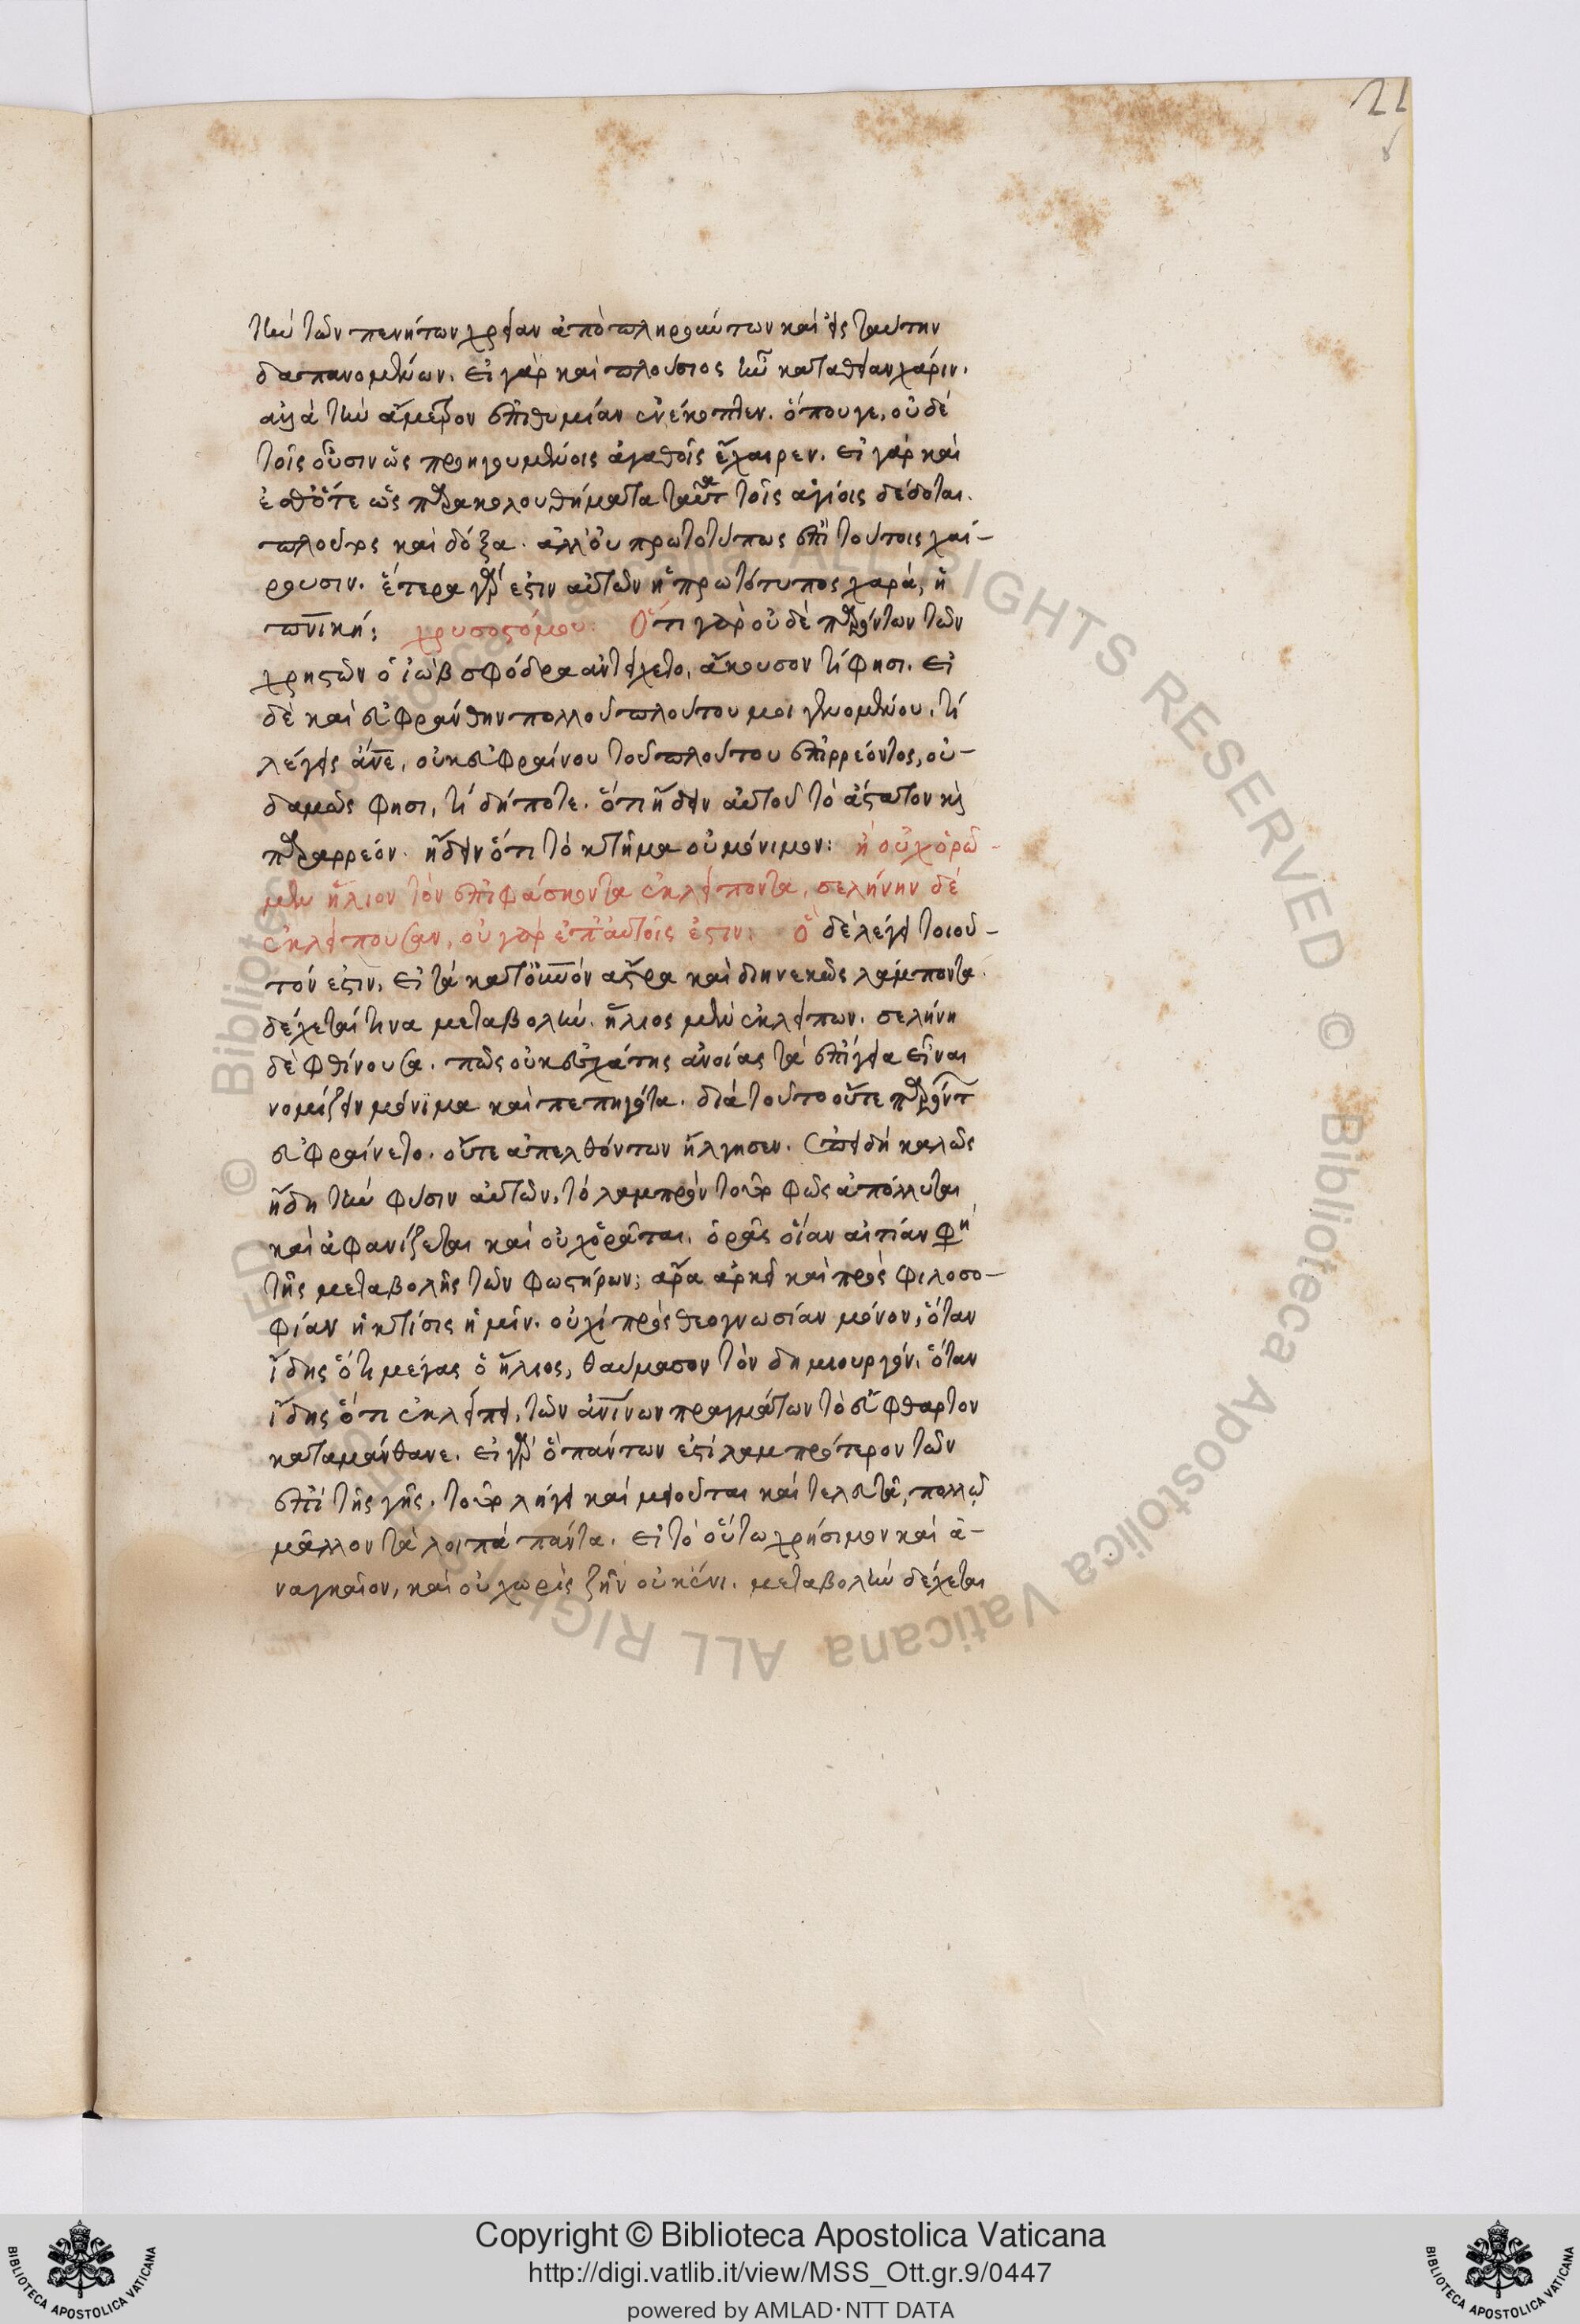 21
τὴν τῶν πενήτων χρείαν ἀποπληρούντων καὶ εἰς ταύτην
δαπανομένων. εἰ γὰρ καὶ πλούσιος ἦν κατὰ θείαν χάριν.
ἀλλὰ τὴν ἄμετρον ἐπιθυμίαν ἐνέκοπτεν. ὅπου γε, οὐδὲ
τοῖς οὖσιν ὡς προηγουμένοις ἀγαθοῖς ἔχαιρεν. εἰ γὰρ καὶ
ἐσθότε ὡς παρακολουθήματα ταῦτα τοῖς ἁγίοις δέδοται.
πλοῦτος καὶ δόξα. ἀλλ' οὐ πρωτοτύπως ἐπὶ τούτοις χαί-
ρουσιν. ἑτέρα γάρ ἐστιν αὐτῶν ἡ πρωτότυπος χαρά, ἡ
πνικὴ: χρυσοστόμου: Ὅτι γὰρ οὐδὲ παρόντων τῶν
χρηστῶν ὁ ἰὼβ σφόδρα ἀντείχετο, ἄκουσον τί φησι. εἰ
δὲ καὶ εὐφράνθην πολλοῦ πλούτου μοι γενομένου. τί
λέγεις ἄνε, οὐκ εὐφραίνου τοῦ πλούτου ἐπιρρέοντος, οὐ-
δαμῶς φησι, τί δήποτε. ὅτι ᾔδειν αὐτοῦ τὸ ἄστατον καὶ
παραρρέον. ᾔδειν ὅτι τὸ κτῆμα οὐ μόνιμον: ἢ οὐχ ὁρῶ-
μεν ἥλιον τὸν ἐπιφάσκοντα ἐκλείποντα, σελήνην δὲ
ἐκλείπουσαν, οὐ γὰρ ἐπ' αὐτοῖς ἐστιν: Ὃ δὲ λέγει τοιοῦ-
τόν ἐστιν, εἰ τὰ κατ' οὐνον ἄστρα καὶ διηνεκῶς λάμποντα.
δέχεταί τινα μεταβολήν. ἥλιος μὲν ἐκλείπων. σελήνη
δὲ φθίνουσα. πῶς οὐκ ἐσχάτης ἀνοίας τὰ ἐπίγεια εἶναι
νομίζειν μόνϊμα καὶ πεπηγότα. διὰ τοῦτο οὔτε παρόντων
εὐφραίνετο. οὔτε ἀπελθόντων ἤλγησεν. ἐπειδὴ καλῶς
ᾔδη τὴν φύσιν αὐτῶν, τὸ λαμπρὸν τοῦτο φῶς ἀπόλλυται
καὶ ἀφανίζεται καὶ οὐχ ὁρᾶται. ὁρᾶς οἵαν αἰτίαν φη
τῆς μεταβολῆς τῶν φωστήρων; ἄρα ἀρκεῖ καὶ πρὸς φιλοσο-
φίαν ἡ κτίσις ἡμῖν. οὐχὶ πρὸς θεογνωσίαν μόνον, ὅταν
ἴδης ὅτι μέγας ὁ ἥλιος, θαύμασον τὸν δημιουργόν. ὅταν
ἴδης ὅτι ἐκλείπει, τῶν ἀνίνων πραγμάτων τὸ εὔφθαρτον
καταμάνθανε. εἰ γὰρ ὃ πάντων ἐστὶ λαμπρότερον τῶν
ἐπὶ τῆς γῆς. τοῦτο λήγει καὶ μειοῦται καὶ τελευτᾶ, πολλῷ
μᾶλλον τὰ λοιπὰ πάντα. εἰ τὸ οὕτω χρήσιμον καὶ ἀ-
ναγκαῖον, καὶ οὗ χωρὶς ζῆν οὐκ ἔνι. μεταβολὴν δέχεται
© Biblioteca Apostolica Vaticana ALL RIGHTS RESERVED
Copyright © Biblioteca Apostolica Vaticana
http://digi.vatlib.it/view/MSS_Ott.gr.9/0447
powered by AMLAD·NTT DATA
BIBLIOTECA APOSTOLICA VATICANA
BIBLIOTECA APOSTOLICA VATICANA